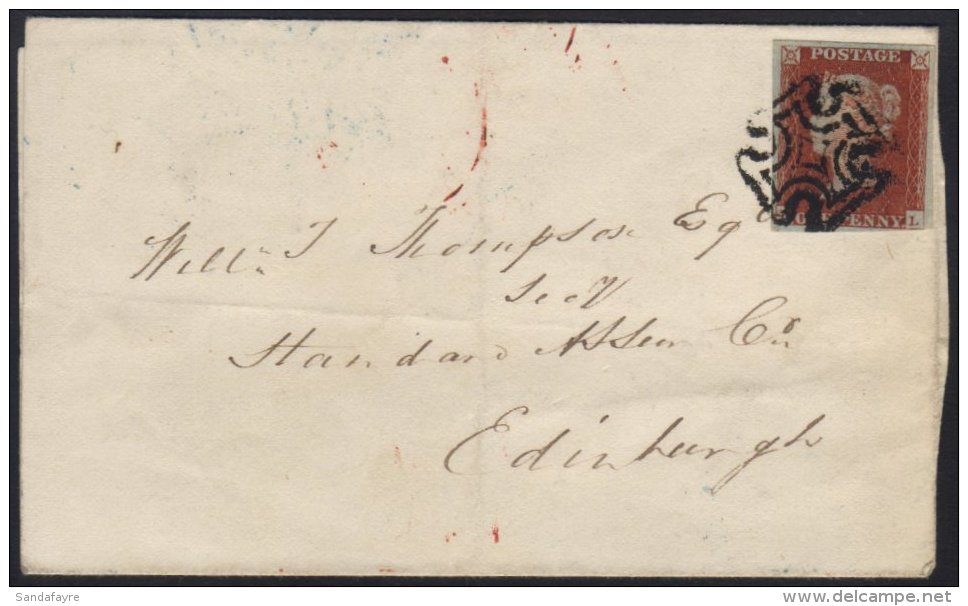 POSTAGE
PENNY L
Willm T Thompson Esqr
Secy
Standard Assce Co
Edinburgh
Sandafayre
delcampe.net